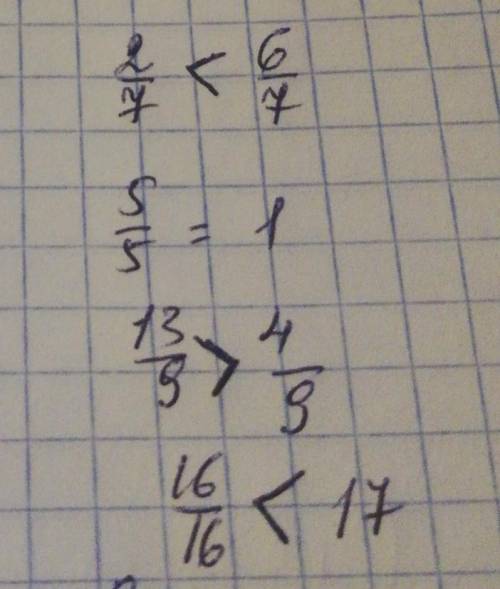 2/7 < 6/7
5/5 = 1
13/9 > 4/9
16/16 < 17